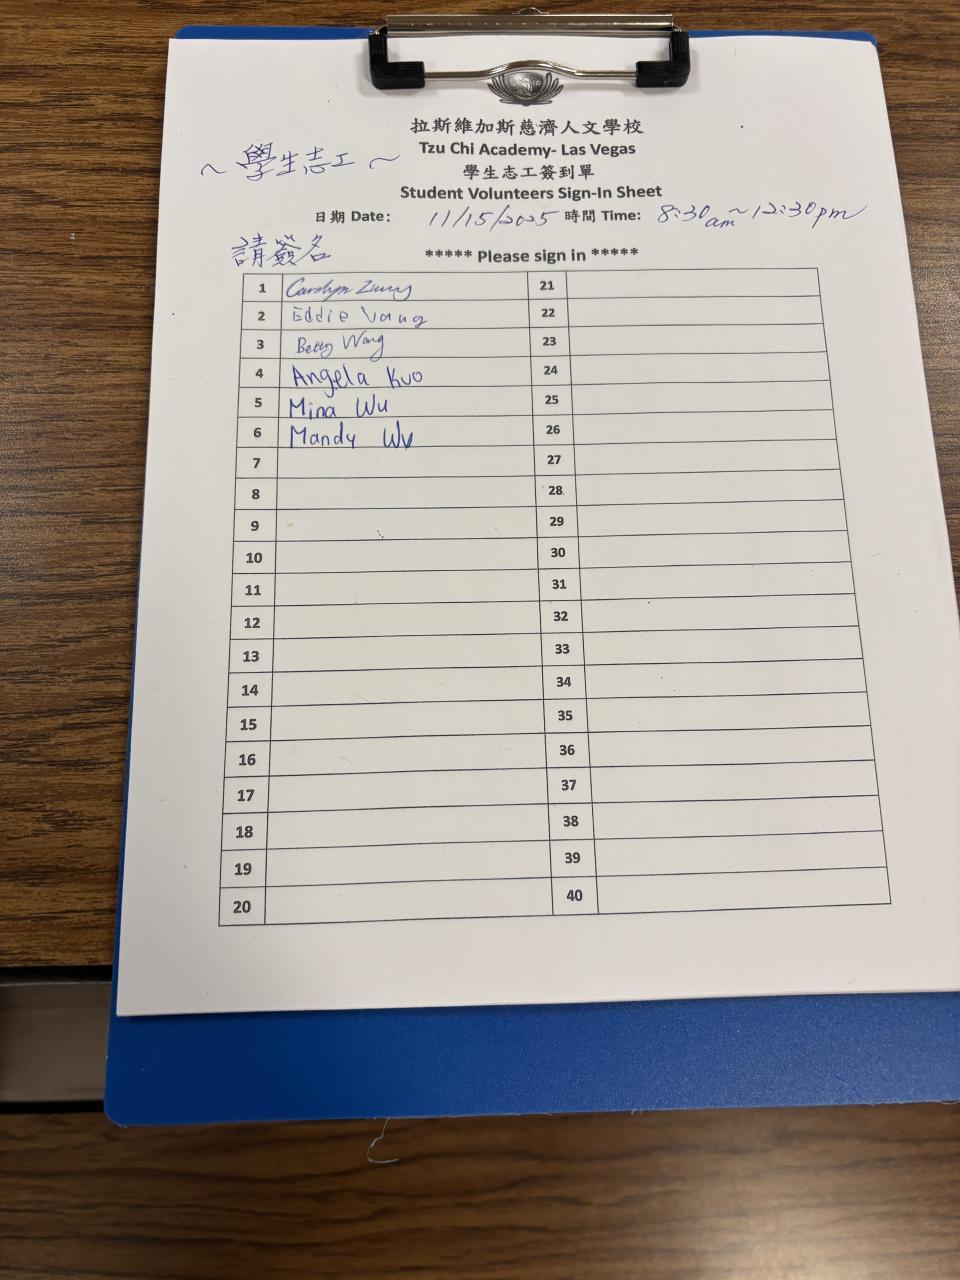 拉斯維加斯慈濟人文學校
Tzu Chi Academy- Las Vegas
~ 學生志工 ~
學生志工簽到單
Student Volunteers Sign-In Sheet
日期 Date: 11/15/2025 時間 Time: 8:30am ~ 12:30pm
請簽名
***** Please sign in *****
1 Carolyn 21
2 Eddie 22
3 Betty Wang 23
4 Angela Kuo 24
5 Mina Wu 25
6 Mandy Wu 26
7 27
8 28
9 29
10 30
11 31
12 32
13 33
14 34
15 35
16 36
17 37
18 38
19 39
20 40